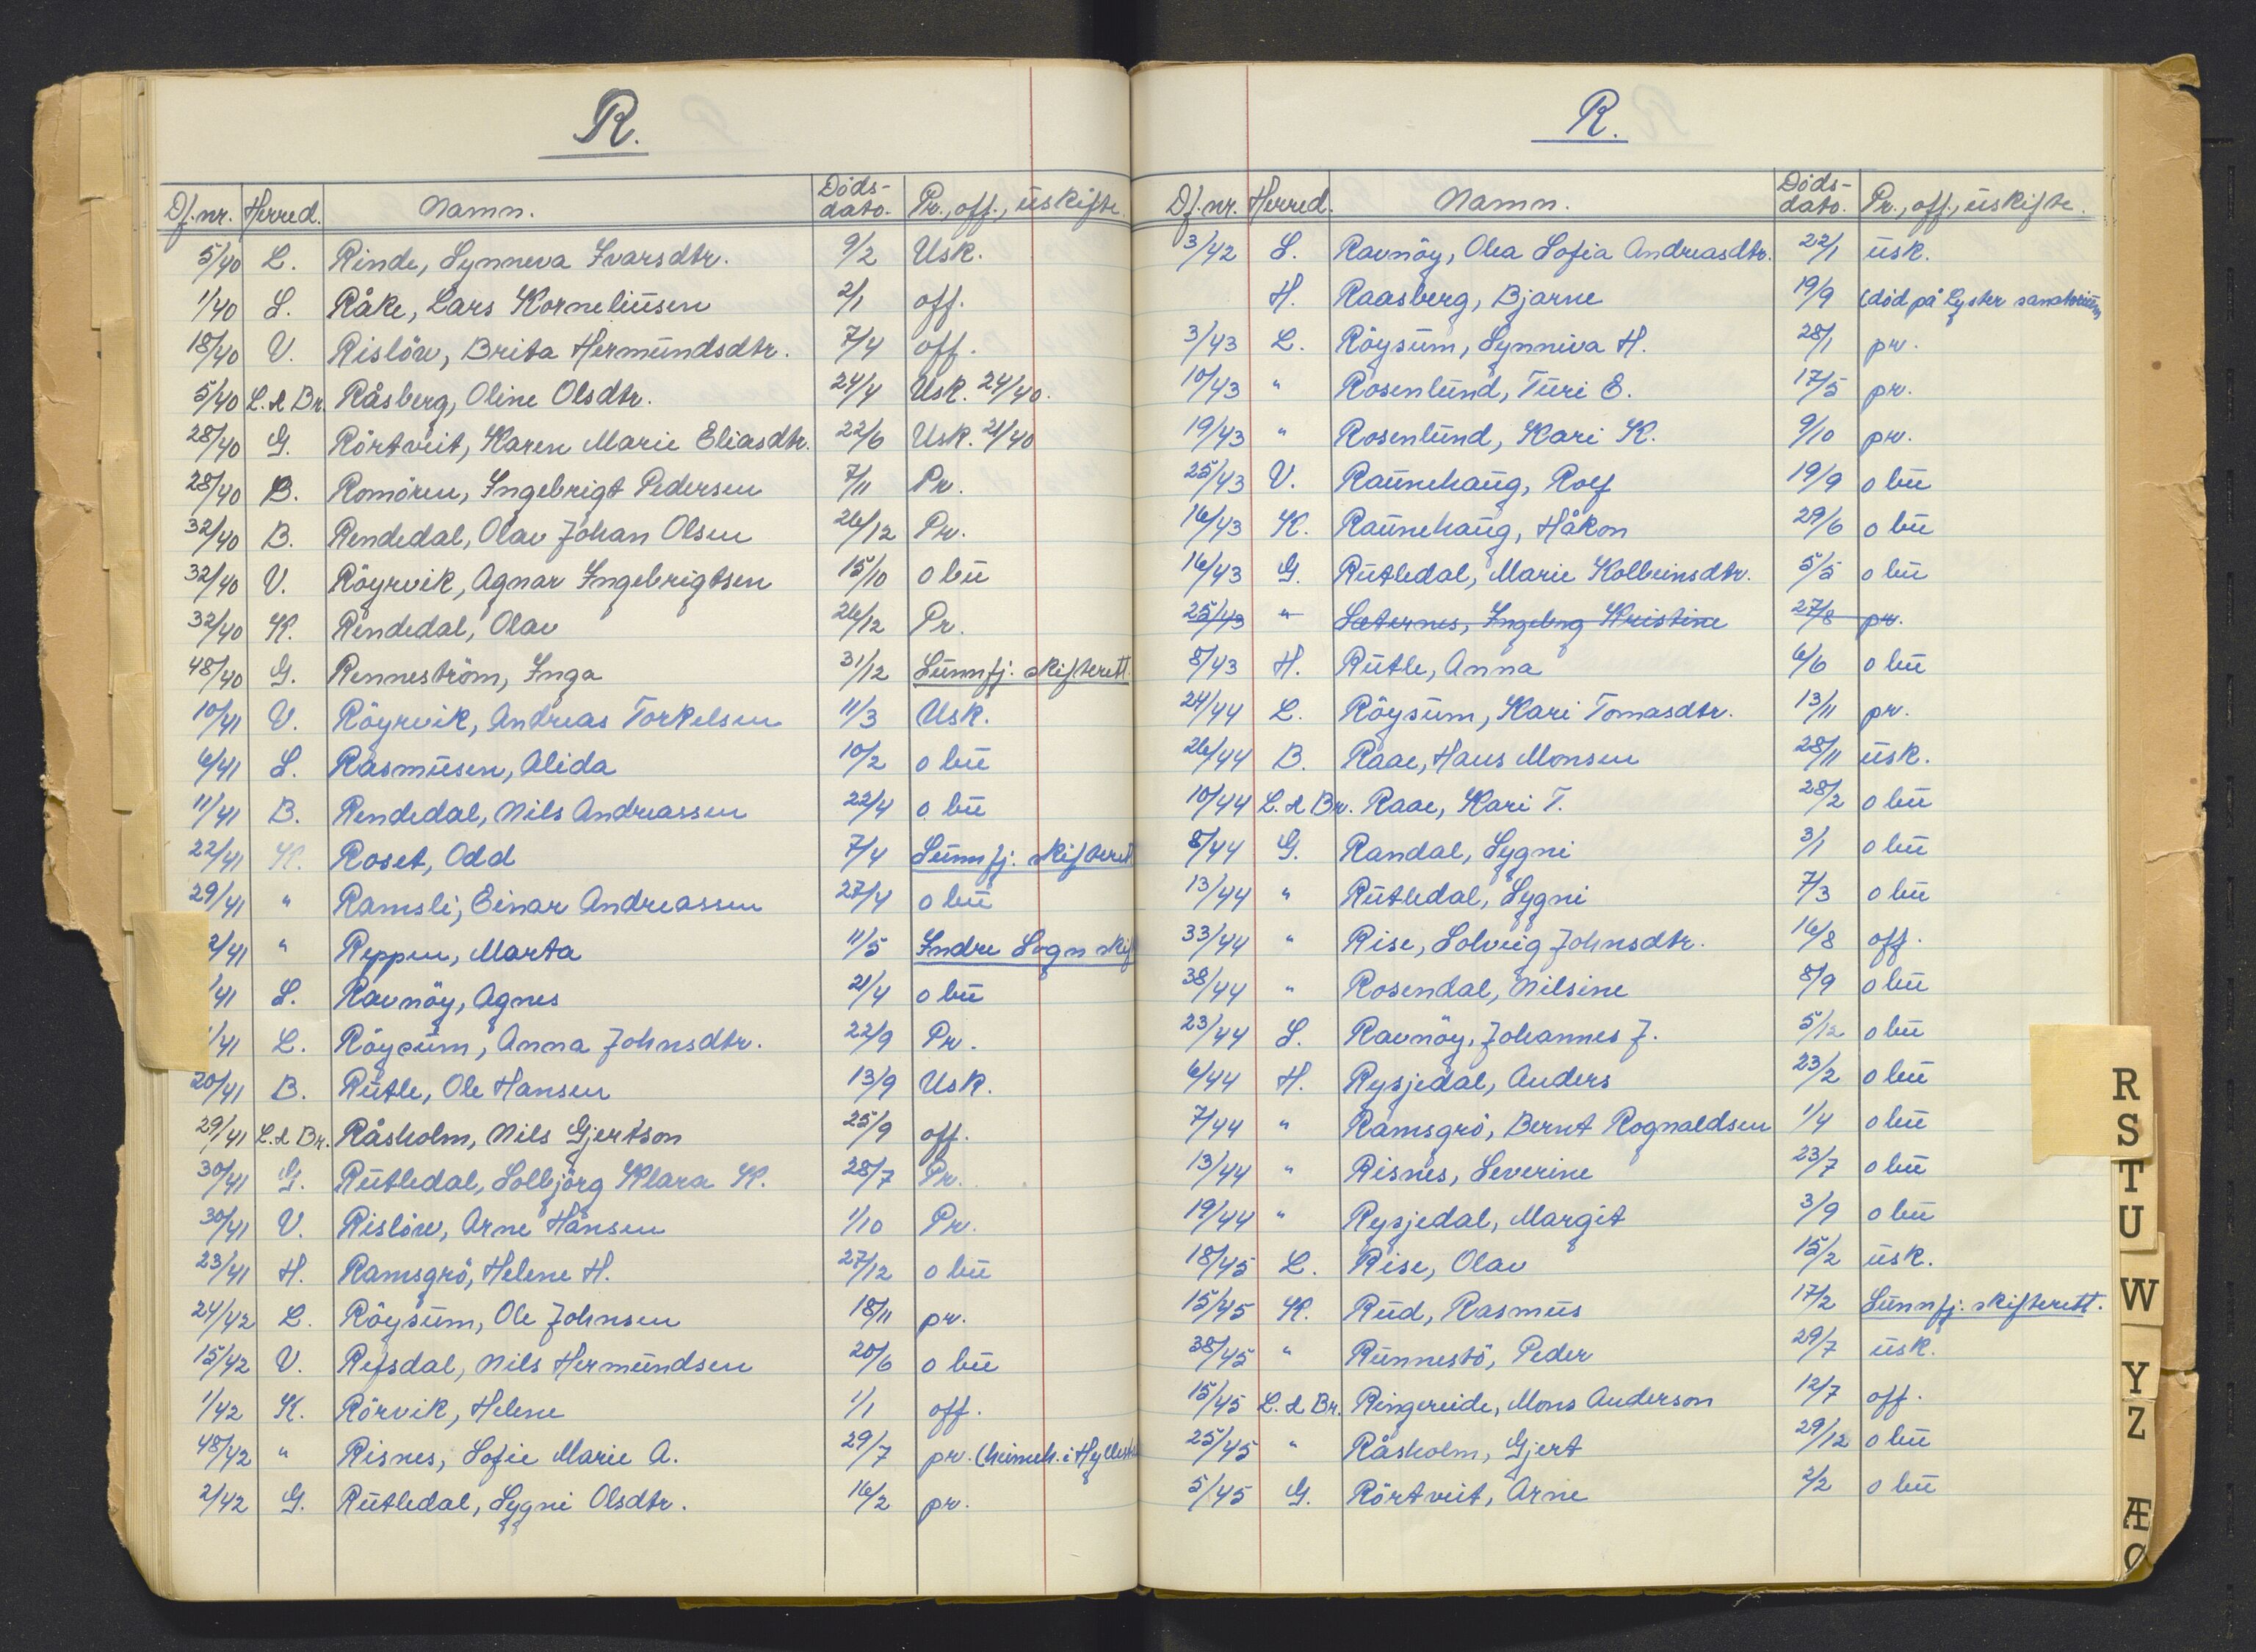 R.
Df.nr. Herred. Namn. Döds-dato. Pr., off., uskifte.
5/40 L. Rinde, Synneva Ivarsdtr. 9/2 Usk.
1/40 S. Råke, Lars Korneliusen 2/1 off.
18/40 V. Rislöw, Brita Hermundsdtr. 7/4 off.
5/40 L. & Br. Råsberg, Oline Olsdtr. 24/4 Usk. 24/40.
28/40 G. Rörtveit, Karen Marie Eliasdtr. 22/6 Usk. 21/40
28/40 B. Romören, Ingebrigt Pedersen 7/11 Pr.
32/40 B. Rendedal, Olav Johan Olsen 26/12 Pr.
32/40 V. Röyrvik, Agnar Ingebrigtsen 15/10 o bu
32/40 K. Rendedal, Olav 26/12 Pr.
48/40 G. Renneström, Inga 31/12 Sunnfj. skifterett.
10/41 V. Röyrvik, Andreas Torkelsen 11/3 Usk.
6/41 S. Rasmusen, Alida 10/2 o bu
11/41 B. Rendedal, Nils Andreassen 22/4 o bu
22/41 K. Roset, Odd 7/4 Sunnfj. skifteret
29/41 " Ramsli, Einar Andreassen 27/4 o bu
2/41 " Reppen, Marta 11/5 Indre Sogn skif
/41 S. Ravnöy, Agnes 21/4 o bu
/41 L. Röysum, Anna Johnsdtr. 22/9 Pr.
20/41 B. Rutle, Ole Hansen 13/9 Usk.
29/41 L. & Br. Råsholm, Nils Gjertson 25/9 off.
30/41 G. Rutledal, Solbjörg Klara K. 28/7 Pr.
30/41 V. Rislöw, Arne Hansen 1/10 Pr.
23/41 H. Ramsgrö, Helene H. 27/12 o bu
24/42 L. Röysum, Ole Johnsen 18/11 pr.
15/42 V. Refsdal, Nils Hermundsen 20/6 o bu
1/42 K. Rörvik, Helene 1/1 off.
48/42 " Risnes, Sofie Marie A. 29/7 pr. (heimeh. i Hyllest
2/42 G. Rutledal, Sygni Olsdtr. 16/2 pr.
R.
Df.nr. Herred. Namn. Döds-dato. Pr., off., uskifte.
3/42 S. Ravnöy, Olea Sofia Andreasdtr. 22/1 usk.
H. Raasberg, Bjarne 19/9 (död på Lyster sanatorium
3/43 L. Röysum, Synniva H. 28/1 pr.
10/43 " Rosenlund, Turi E. 17/5 pr.
19/43 " Rosenlund, Kari K. 9/10 pr.
25/43 V. Raunehaug, Rolf 19/9 o bu
16/43 K. Raunehaug, Håkon 29/6 o bu
16/43 G. Rutledal, Marie Kolbeinsdtr. 5/5 o bu
25/43 " Sæternes, Ingebrg Kristine 27/8 pr.
8/43 H. Rutle, Anna 6/6 o bu
24/44 L. Röysum, Kari Tomasdtr. 13/11 pr.
26/44 B. Raae, Hans Monsen 28/11 usk.
10/44 L. & Br. Raae, Kari T. 28/2 o bu
8/44 G. Randal, Sygni 3/1 o bu
13/44 " Rutledal, Sygni 7/3 o bu
33/44 " Rise, Solveig Johnsdtr. 16/8 off.
38/44 " Rosendal, Nilsine 8/9 o bu
23/44 S. Ravnöy, Johannes J. 5/12 o bu
6/44 H. Rysjedal, Anders 23/2 o bu
7/44 " Ramsgrö, Bernt Rognaldsen 1/4 o bu
13/44 " Risnes, Severine 23/7 o bu
19/44 " Rysjedal, Margit 3/9 o bu
18/45 L. Rise, Olav 15/2 usk.
15/45 K. Rud, Rasmus 17/2 Sunnfj. skifterett.
38/45 " Runnestö, Peder 29/7 usk.
15/45 L. & Br. Ringereide, Mons Anderson 12/7 off.
25/45 " Råsholm, Gjert 29/12 o bu
5/45 G. Rörtveit, Arne 2/2 o bu
R
S
T
U
W
Y
Z
Æ
Ø